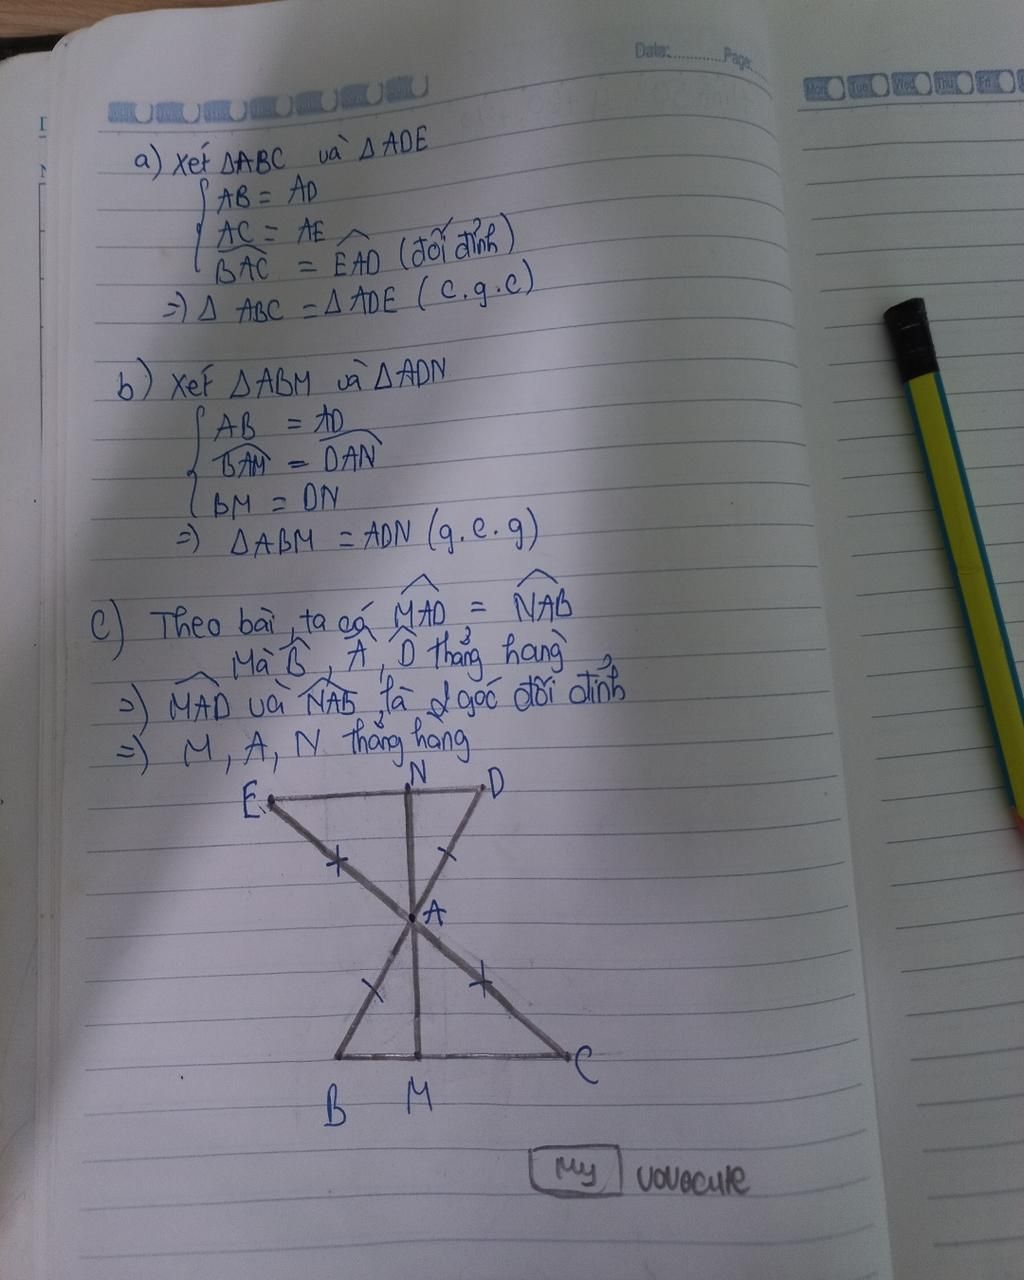 Date:............Page:
Mon Tue Wed Thu Fri
a) Xét ΔABC và ΔADE
AB = AD
AC = AE
\widehat{BAC} = \widehat{EAD} (đối đỉnh)
=) Δ ABC = Δ ADE (c.g.c)
b) Xét ΔABM và ΔADN
AB = AD
\widehat{BAM} = \widehat{DAN}
BM = DN
=) ΔABM = ADN (g.c.g)
c) Theo bài, ta có \widehat{MAD} = \widehat{NAB}
Mà \widehat{B}, \widehat{A}, \widehat{D} thẳng hàng
=) \widehat{MAD} và \widehat{NAB} là 2 góc đối đỉnh
=) M, A, N thẳng hàng
E N D
A
B M C
My vovocute